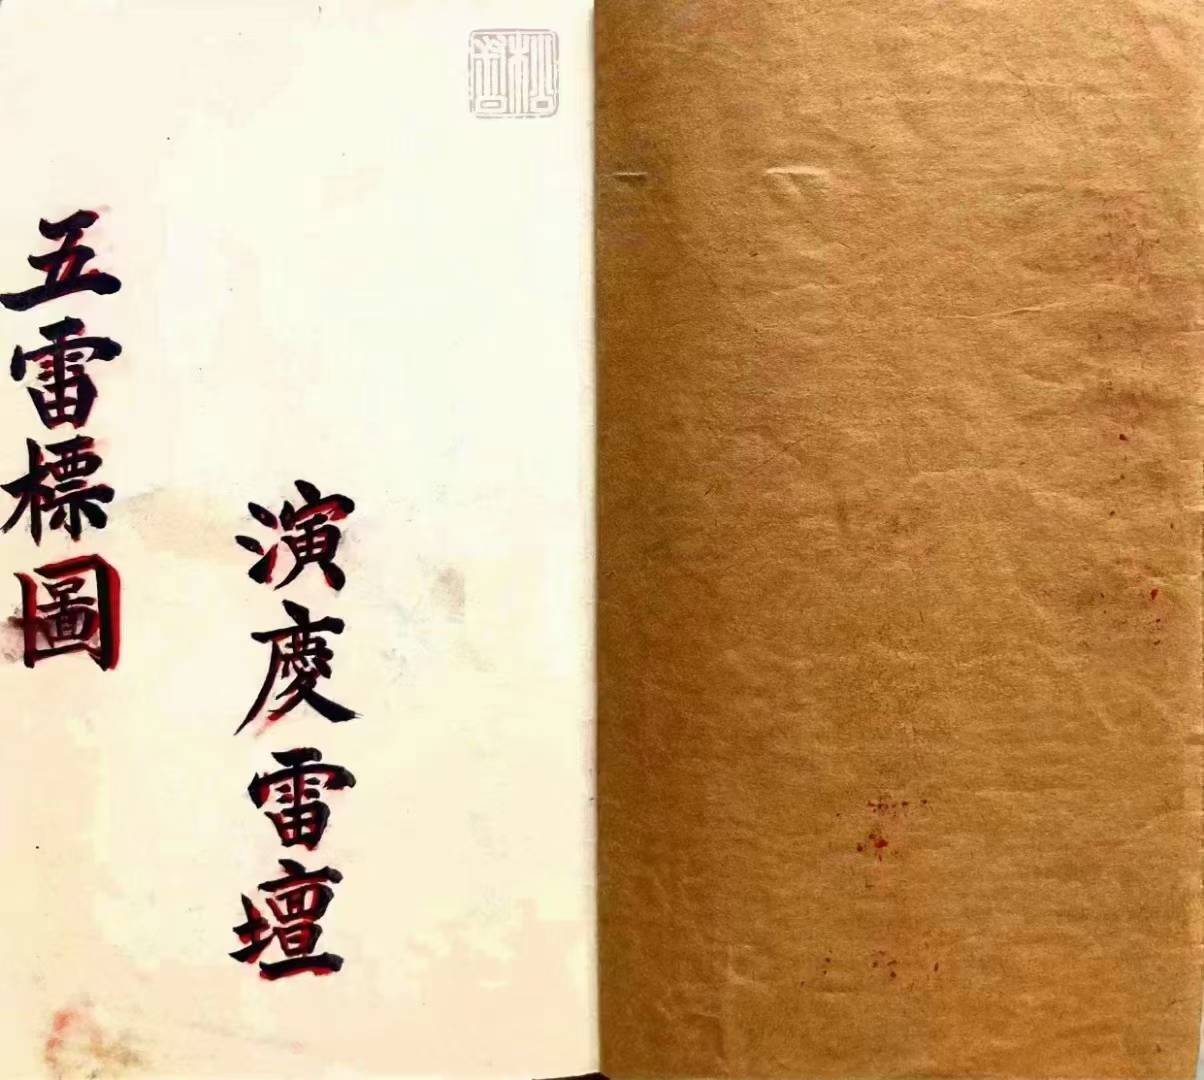 松
演慶雷壇
五雷標圖